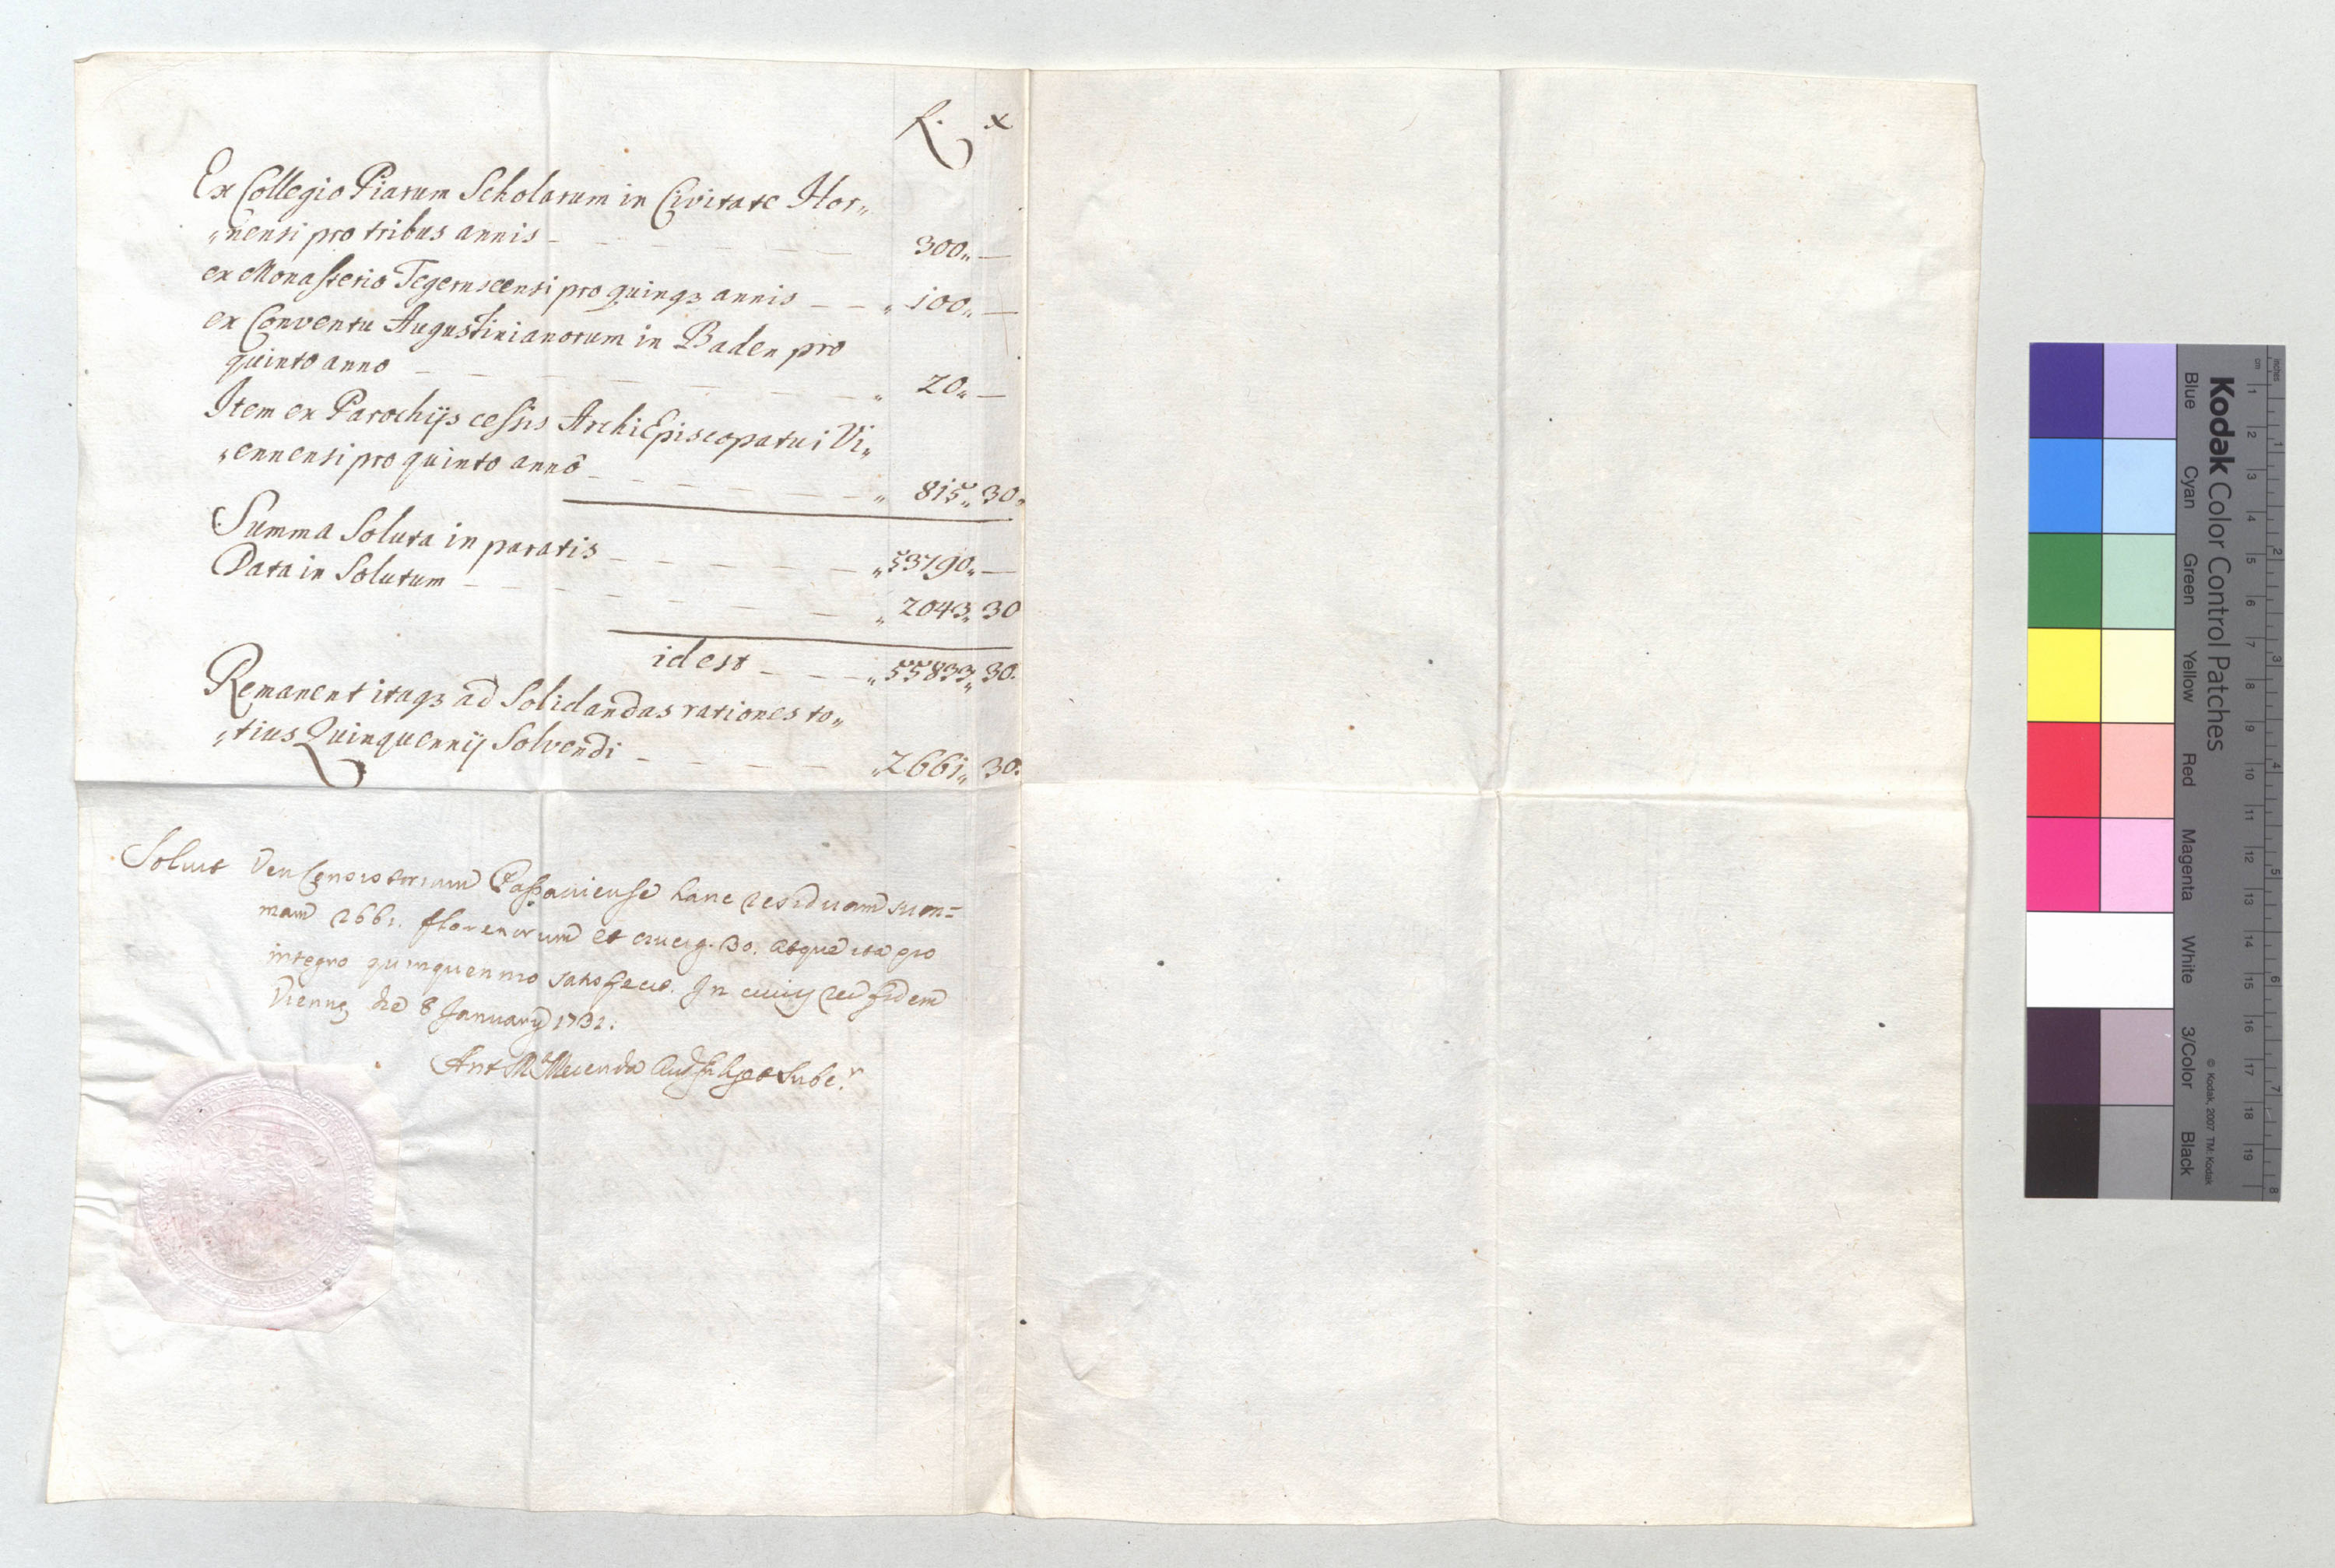 f. x
Ex Collegio Piarum Scholarum in Civitate Hor„
„nensi pro tribus annis — 300„ —
ex Monasterio Tegernseensi pro quinqꝫ annis — „ 100„ —
ex Conventu Augustinianorum in Baden pro
quinto anno — „ 20„ —
Item ex Parochijs cessis ArchiEpiscopatui Vi„
„ennensi pro quinto anno — „ 815„ 30„
Summa Soluta in paratis — „53790„ —
Data in Solutum — „ 2043„ 30
id est — „55833„ 30.
Remanent itaqꝫ ad Solidandas rationes to„
„tius Quinquennij Solvendi — „2661„ 30.
Solvit Ven Consistorium Passaviense hanc residuam sum=
mam 2661. florenorum et crucig. 30. atque ita pro
integro quinquennio satisfecit. In cuius rei fidem
Viennę die 8 January 1732.
Ant M Merenda
Kodak Color Control Patches
Blue Cyan Green Yellow Red Magenta White 3/Color Black
© Kodak, 2007 TM: Kodak
inches 1 2 3 4 5 6 7 8
cm 1 2 3 4 5 6 7 8 9 10 11 12 13 14 15 16 17 18 19